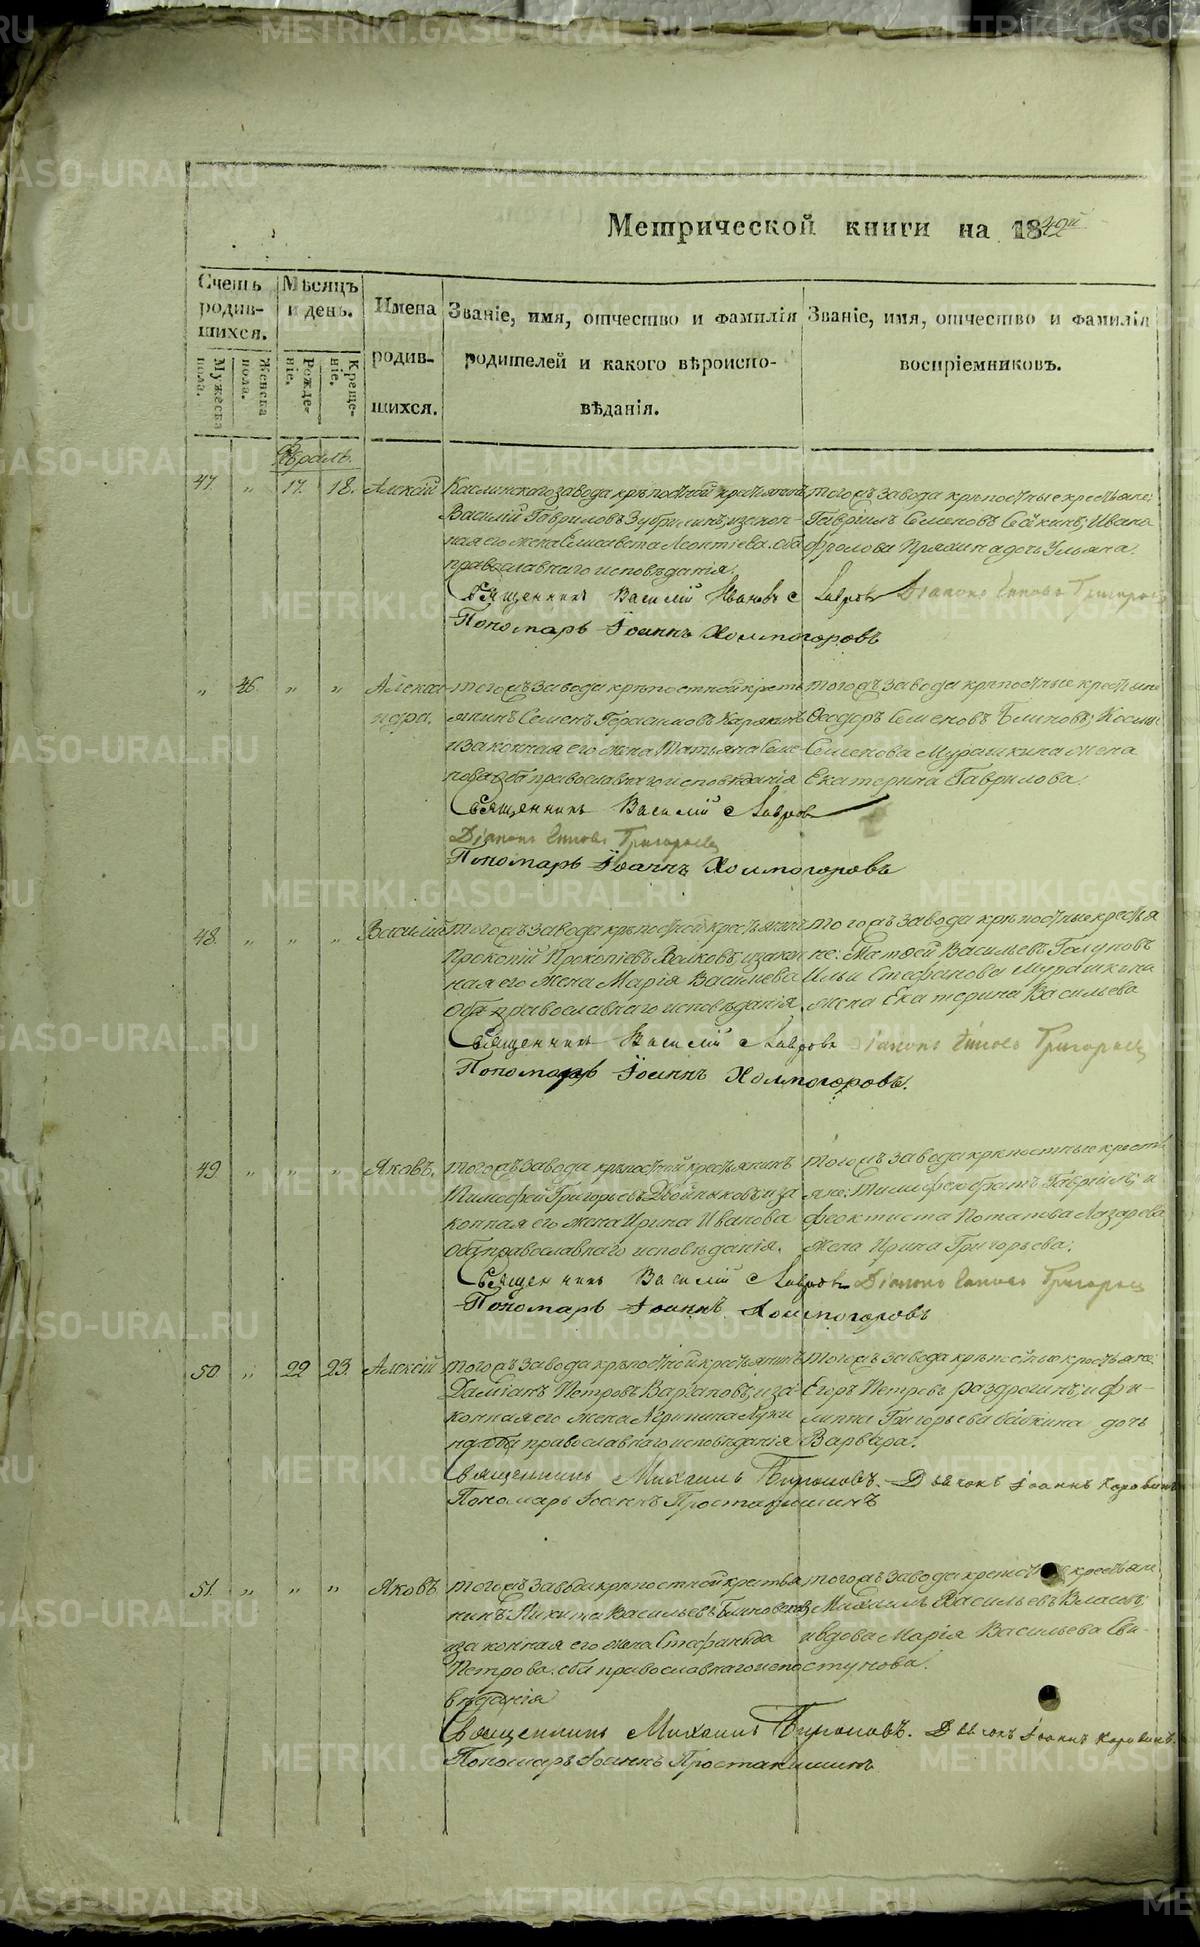 METRIKI.GASO-URAL.RU
Метрической книги на 1842й
Счетъ родив-шихся.
Мужеска пола.
Женска пола.
Мѣсяцъ и день.
Рожде-ніе.
Креще-ніе.
Имена родив-шихся.
Званіе, имя, отчество и фамилія родителей и какого вѣроиспо-вѣданія.
Званіе, имя, отчество и фамилія воспріемниковъ.
Февраль.
47. " 17. 18. Алексій
Каслинскаго завода крѣпостной крестьянинъ
Василій Гавриловъ Зубрилинъ, и закон-
ная его жена Елисавета Леонтіева. оба
православнаго исповѣданія.
тогожъ завода крѣпостные крестьяне:
Гавріилъ Семеновъ, Ивана
Фролова Пряхина дочь Ульяна.
Священникъ Василій Ивановъ Лавровъ Діаконъ Григорьевъ
Пономарь Іоаннъ Холмогоровъ
" 46. " " Алекса-
ндра.
тогожъ завода крѣпостной кресть-
янинъ Семенъ Герасимовъ Карякинъ
и законная его жена Татьяна Семе-
нова оба православнаго исповѣданія
тогожъ завода крѣпостные крестьяне
Ѳеодоръ Семеновъ Блиновъ, Космы
Семенова Мурашкина жена
Екатерина Гаврилова.
Священникъ Василій Лавровъ
Діаконъ Григорьевъ
Пономарь Іоаннъ Холмогоровъ
48. " " " Василій
тогожъ завода крѣпостной крестьянинъ
Прокопій Прокопіевъ Волковъ, и закон
ная его жена Марія Васильева
оба православнаго исповѣданія.
тогожъ завода крѣпостные крестья
не: Матѳей Васильевъ Голуновъ
Ильи Стефанова Мурашкина
жена Екатерина Васильева
Священникъ Василій Лавровъ Діаконъ Григорьевъ
Пономарь Іоаннъ Холмогоровъ.
49. " " " Яковъ.
тогожъ завода крѣпостной крестьянинъ
Тимофей Григорьевъ Двойниковъ, и за
конная его жена Ирина Иванова
оба православнаго исповѣданія.
тогожъ завода крѣпостные крестья
яне: Гавріилъ, и
Феоктиста Потапова Лазарева
жена Ирина Григорьева.
Священникъ Василій Лавровъ Діаконъ Григорьевъ
Пономарь Іоаннъ Холмогоровъ
50. " 22 23. Алексій
тогожъ завода крѣпостной крестьянинъ
Даміанъ Петровъ, и за-
конная его жена Агрипина Луки
на, оба православнаго исповѣданія
тогожъ завода крѣпостные крестьяне:
Егоръ Петровъ, и Фи-
липпа Григорьева Бабкина дочь
Варвара.
Священникъ Михаилъ Бирюковъ. Дьячокъ Іоаннъ Коровинъ
Пономарь Іоаннъ Простакишинъ
51. " " " Яковъ
тогожъ завода крѣпостной крестья-
нинъ Никита Васильевъ Блиновсковъ
и законная его жена Стефанида
Петрова. оба православнаго испо-
вѣданія
тогожъ завода крестьяне
Михаилъ Васильевъ Власовъ,
и вдова Марія Васильева Сви-
стунова.
Священникъ Михаилъ Бирюковъ. Дьячокъ Іоаннъ Коровинъ.
Пономарь Іоаннъ Простакишинъ